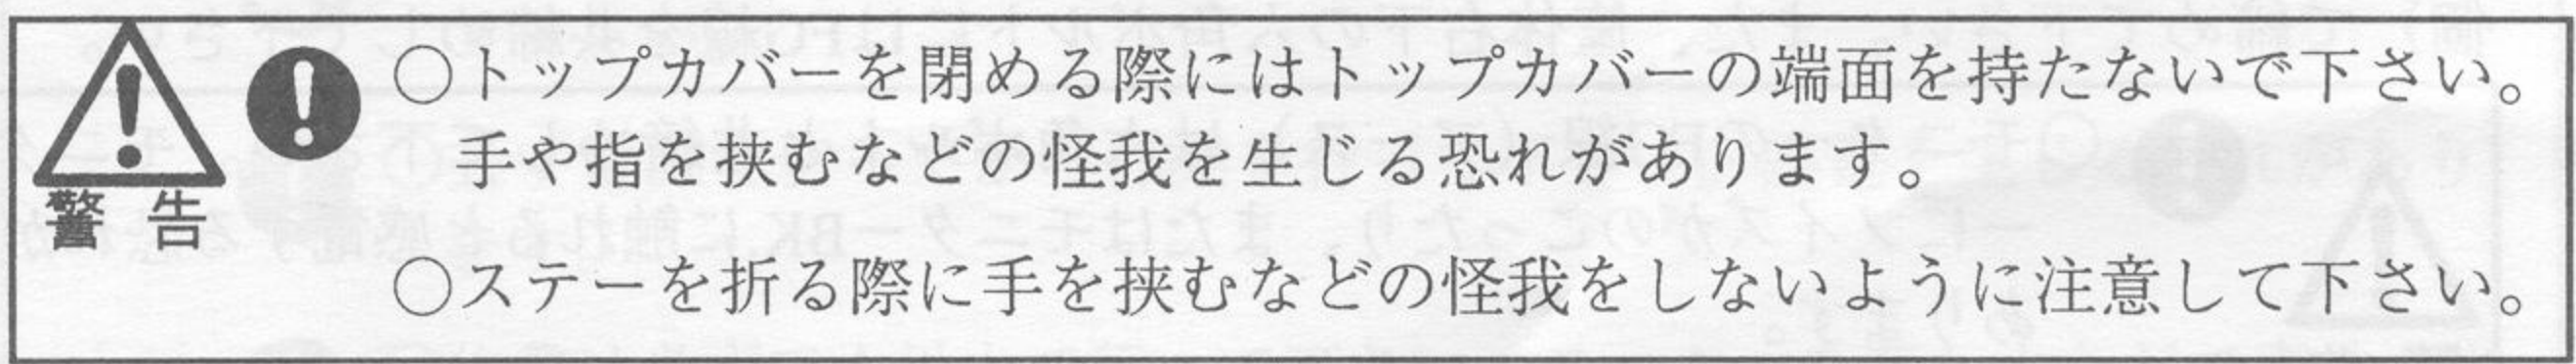 ○トップカバーを閉める際にはトップカバーの端面を持たないで下さい。
手や指を挟むなどの怪我を生じる恐れがあります。
警告
○ステーを折る際に手を挟むなどの怪我をしないように注意して下さい。